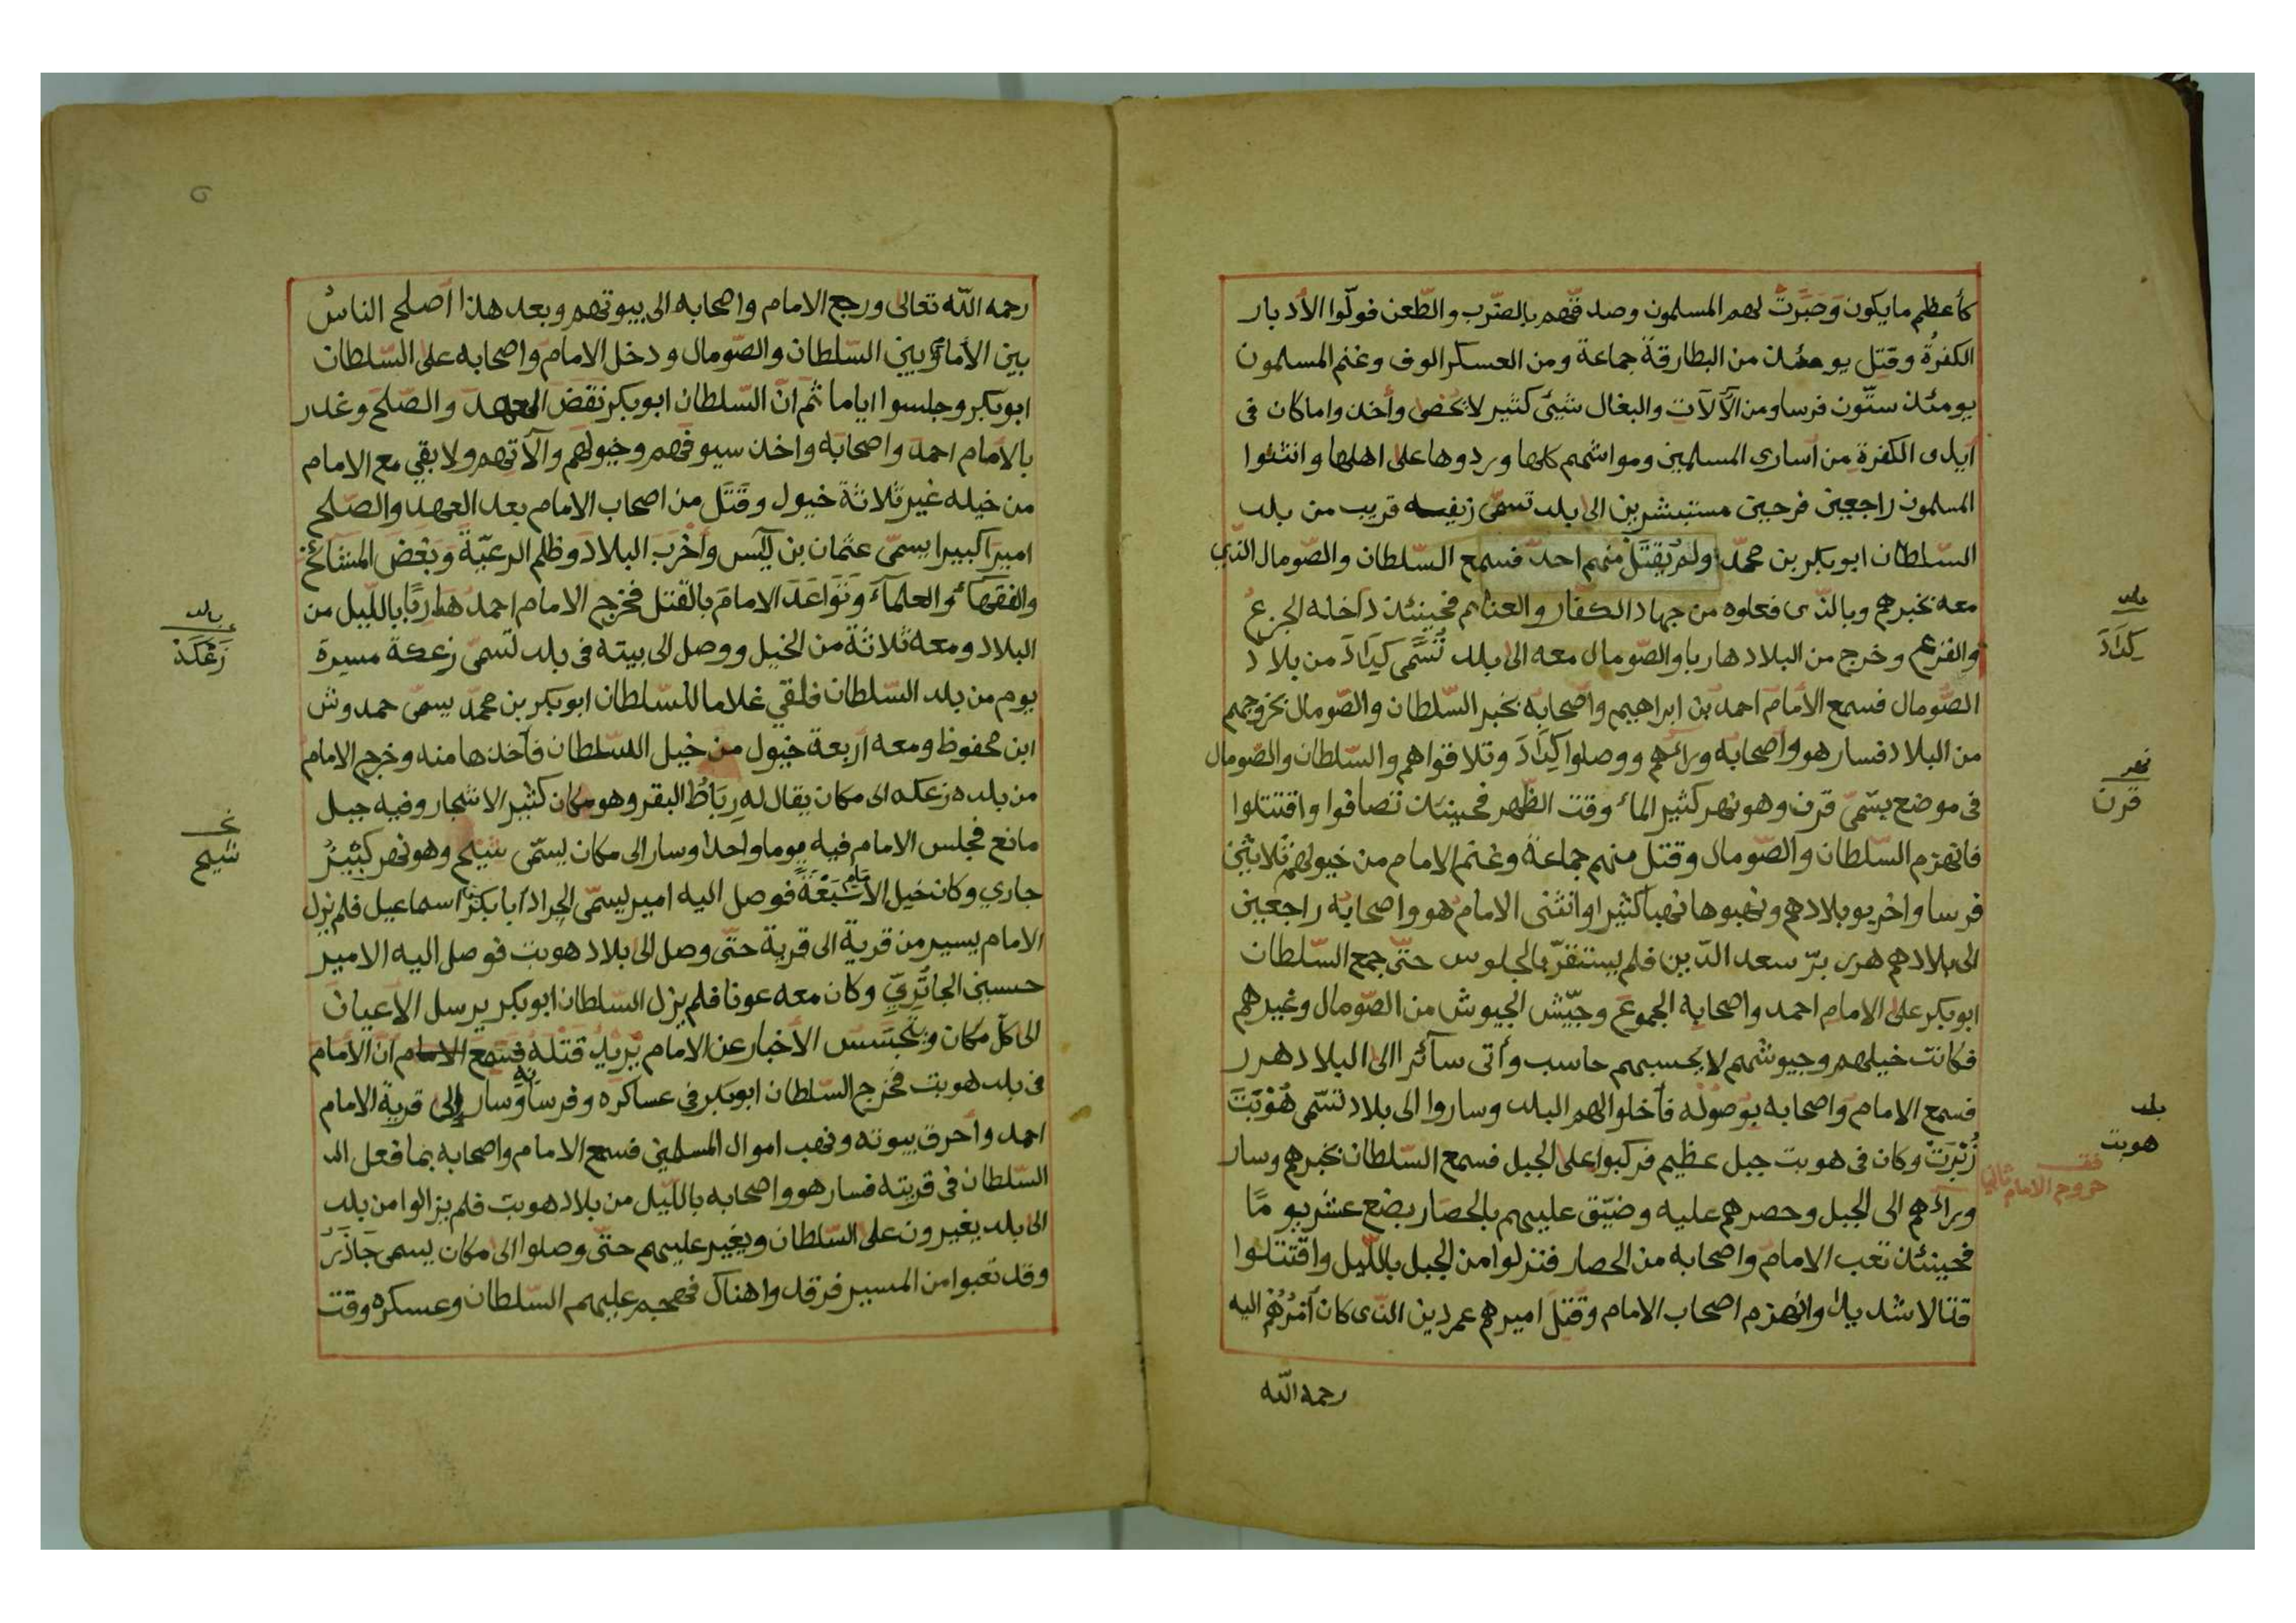 كأعظم مايكون وَصَبَرَتْ لهم المسلمون وصدقهم بالضّرب والطّعن فولّوا الأدبار
الكفرةُ وقتل يومئذ من البطارقة جماعة ومن العسكر الوف وغنم المسلمون
يومئذ ستّون فرسا ومن الآلآت والبغال شيئ كثير لايحصى وأخذوا ماكان فى
آيدى الكفرة من أسارى المسلمين ومواشيهم كلها وردوها على اهلها وانثنوا
المسلمون راجعين فرحين مستبشرين الى بلد تسمّى زيفه قريب من بلد
السّلطان ابوبكر بن محمّد ولم يُقتَل منهم احد فسمع السّلطان والصّومال الّذي
معه بخبرهم وبالذّى فعلوه من جهاد الكفّار والغنائم فحينئذ داخله الجزع
والفزع وخرج من البلاد هاربا والصّومال معه الى بلد تُسَمَّى كِدَادَ من بلاد
الصُّومال فسمع الأمام احمد بن ابراهيم وأصحابه بخبر السّلطان والصّومال بخروجهم
من البلاد فسار هو وأصحابه ورائهم ووصلوا كِدَادَ وتلاقواهم والسّلطان والصّومال
فى موضع يسّمىّ قرن وهو نهر كثير المآء وقت الظّهر فحينئذ تصافوا واقتتلوا
فانهزم السّلطان والصّومال وقتل منهم جماعة وغنم الامام من خيولهم ثلاثين
فرسا واخربو بلادهم ونهبوها نهبا كثيرا وانثنى الامام هو واصحابه راجعين
الى بلادهم هرر برّ سعد الدّين فلم يستقرّ بالجلوس حتّى جمع السّلطان
ابوبكر على الامام احمد واصحابه الجموع وجيّش الجيوش من الصّومال وغيرهم
فكانت خيلهم وجيوشهم لايحسبهم حاسب وأتى سآئرا الى البلاد هرر
فسمع الامام واصحابه بوصوله فآخلوا لهم البلد وساروا الى بلاد تسّمى هُوْبَتَ
زُنْبَرَتْ وكان فى هوبت جبل عظيم فركبوا على الجبل فسمع السّلطان بخبرهم وسار
ورائهم الى الجبل وحصرهم عليه وضيّق عليهم بالحصار بضع عشر يومًا
فحينئذ تعب الامام واصحابه من الحصار فنزلوا من الجبل بالّليل واقتتلوا
قتالا شديدا وانهزم اصحاب الامام وقُتِلَ اميرهم عمردين الذى كان أمْرُهُمْ اليه
رحمه الله
بلد
كِدَادَ
نهر
قرن
بلد
هوبت
قف
خروج الامام ثاني
رحمه اللّه تعالى ورجع الامام واصحابه الى بيوتهم وبعد هذا أصلح الناسُ
بين الأمام وبين السّلطان والصّومال ودخل الامام واصحابه على السّلطان
ابوبكر وجلسوا اياما ثم انّ السّلطان ابوبكر نقَضَ العهد والصّلح وغدر
بالأمام احمد واصحابه واخذ سيوفهم وخيولهم وآلآتهم ولابقي مع الامام
من خيله غير ثلاثة خيول وقَتَل من اصحاب الامام بعد العهد والصّلح
اميرا كبيرا يسمّى عثمان بن يٓس وأخْرَب البلاد وظلم الرعيّة وبغض المشآئخ
والفقهآء والعلمآء وتَوَاعَدَ الامامَ بالقتل فخرج الامام احمد هاربًا بالّليل من
البلاد ومعه ثلاثة من الخيل ووصل الى بيته فى بلد تسمّى زعكة مسيرة
يوم من بلد السّلطان فلقي غلاما للسلطان ابوبكر بن محمّد يسمّى حمدوش
ابن محفوظ ومعه أربعة خيول من خيل السّلطان فآخذها منه وخرج الامام
من بلده زعكه الى مكان يقال له رِبَاطُ البقر وهو مكان كثير الاشجار وفيه جبل
مانع فجلس الامام فيه يوما واحدا وسار الى مكان يسمّى شيخ وهو نهر كبير
جاري وكان خيل الامام سَبْعَة فوصل اليه امير يسمّى الجراد أبابكر اسماعيل فلم نزل
الامام يسير من قرية الى قرية حتّى وصل الى بلاد هوبت فوصل اليه الامير
حسين الجاتُرِيّ وكان معه عونا فلم يزل السّلطان ابوبكر يرسل الآعيان
الى كلّ مكان ويتجسّس الأخبار عن الامام يريد قَتْلَه فسَمِعَ انّ الأمام
فى بلد هوبت فخرج السّلطان ابوبكر فى عساكره وفرسانه وسار إلى قرية الامام
احمد وأحرق بيوته ونهب اموال المسلمين فسمع الامام واصحابه بما فعل
السّلطان فى قريته فسار هو واصحابه بالّليل من بلاد هوبت فلم يزالوا من بلد
الى بلد يغيرون على السّلطان ويغير عليهم حتّى وصلوا الى مكان يسمى جَادَّرُ
وقد تعبوا من المسير فرقدوا هناك فهجم عليهم السّلطان وعسكره وقت
بلد
زَعْكَةْ
شيخ